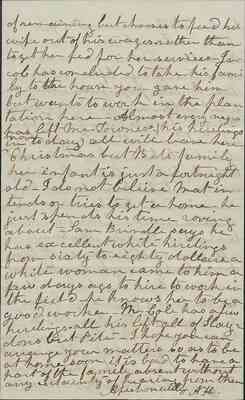 of remaining but chooses to feed his
wife out of his wages rather than
to get her fed for her services. Ja-
cob has concluded to take his fami
ly to the house you gave him
but wants to work in the plan
tation here. Almost every negro
has left Mr
in to day) all will leave here
Christmas but B family
her infant is just a fortnight
old. I do not believe Mat in
tends or tries to get a home he
just spends his time roving
about. Sam Brindle says he
has excellent white hirelings
from sixty to eighty dollars a
white woman came to him a
few days ago, to hire to work in
the field & he knows her to be a
good worker. Mr Cole has a few
hirelings all his left
but I hope you can
arrange your matters so as to be
at home soon it is bad to have a
part of the family absent without
any certainty of hearing from them
Affectionately A.H.